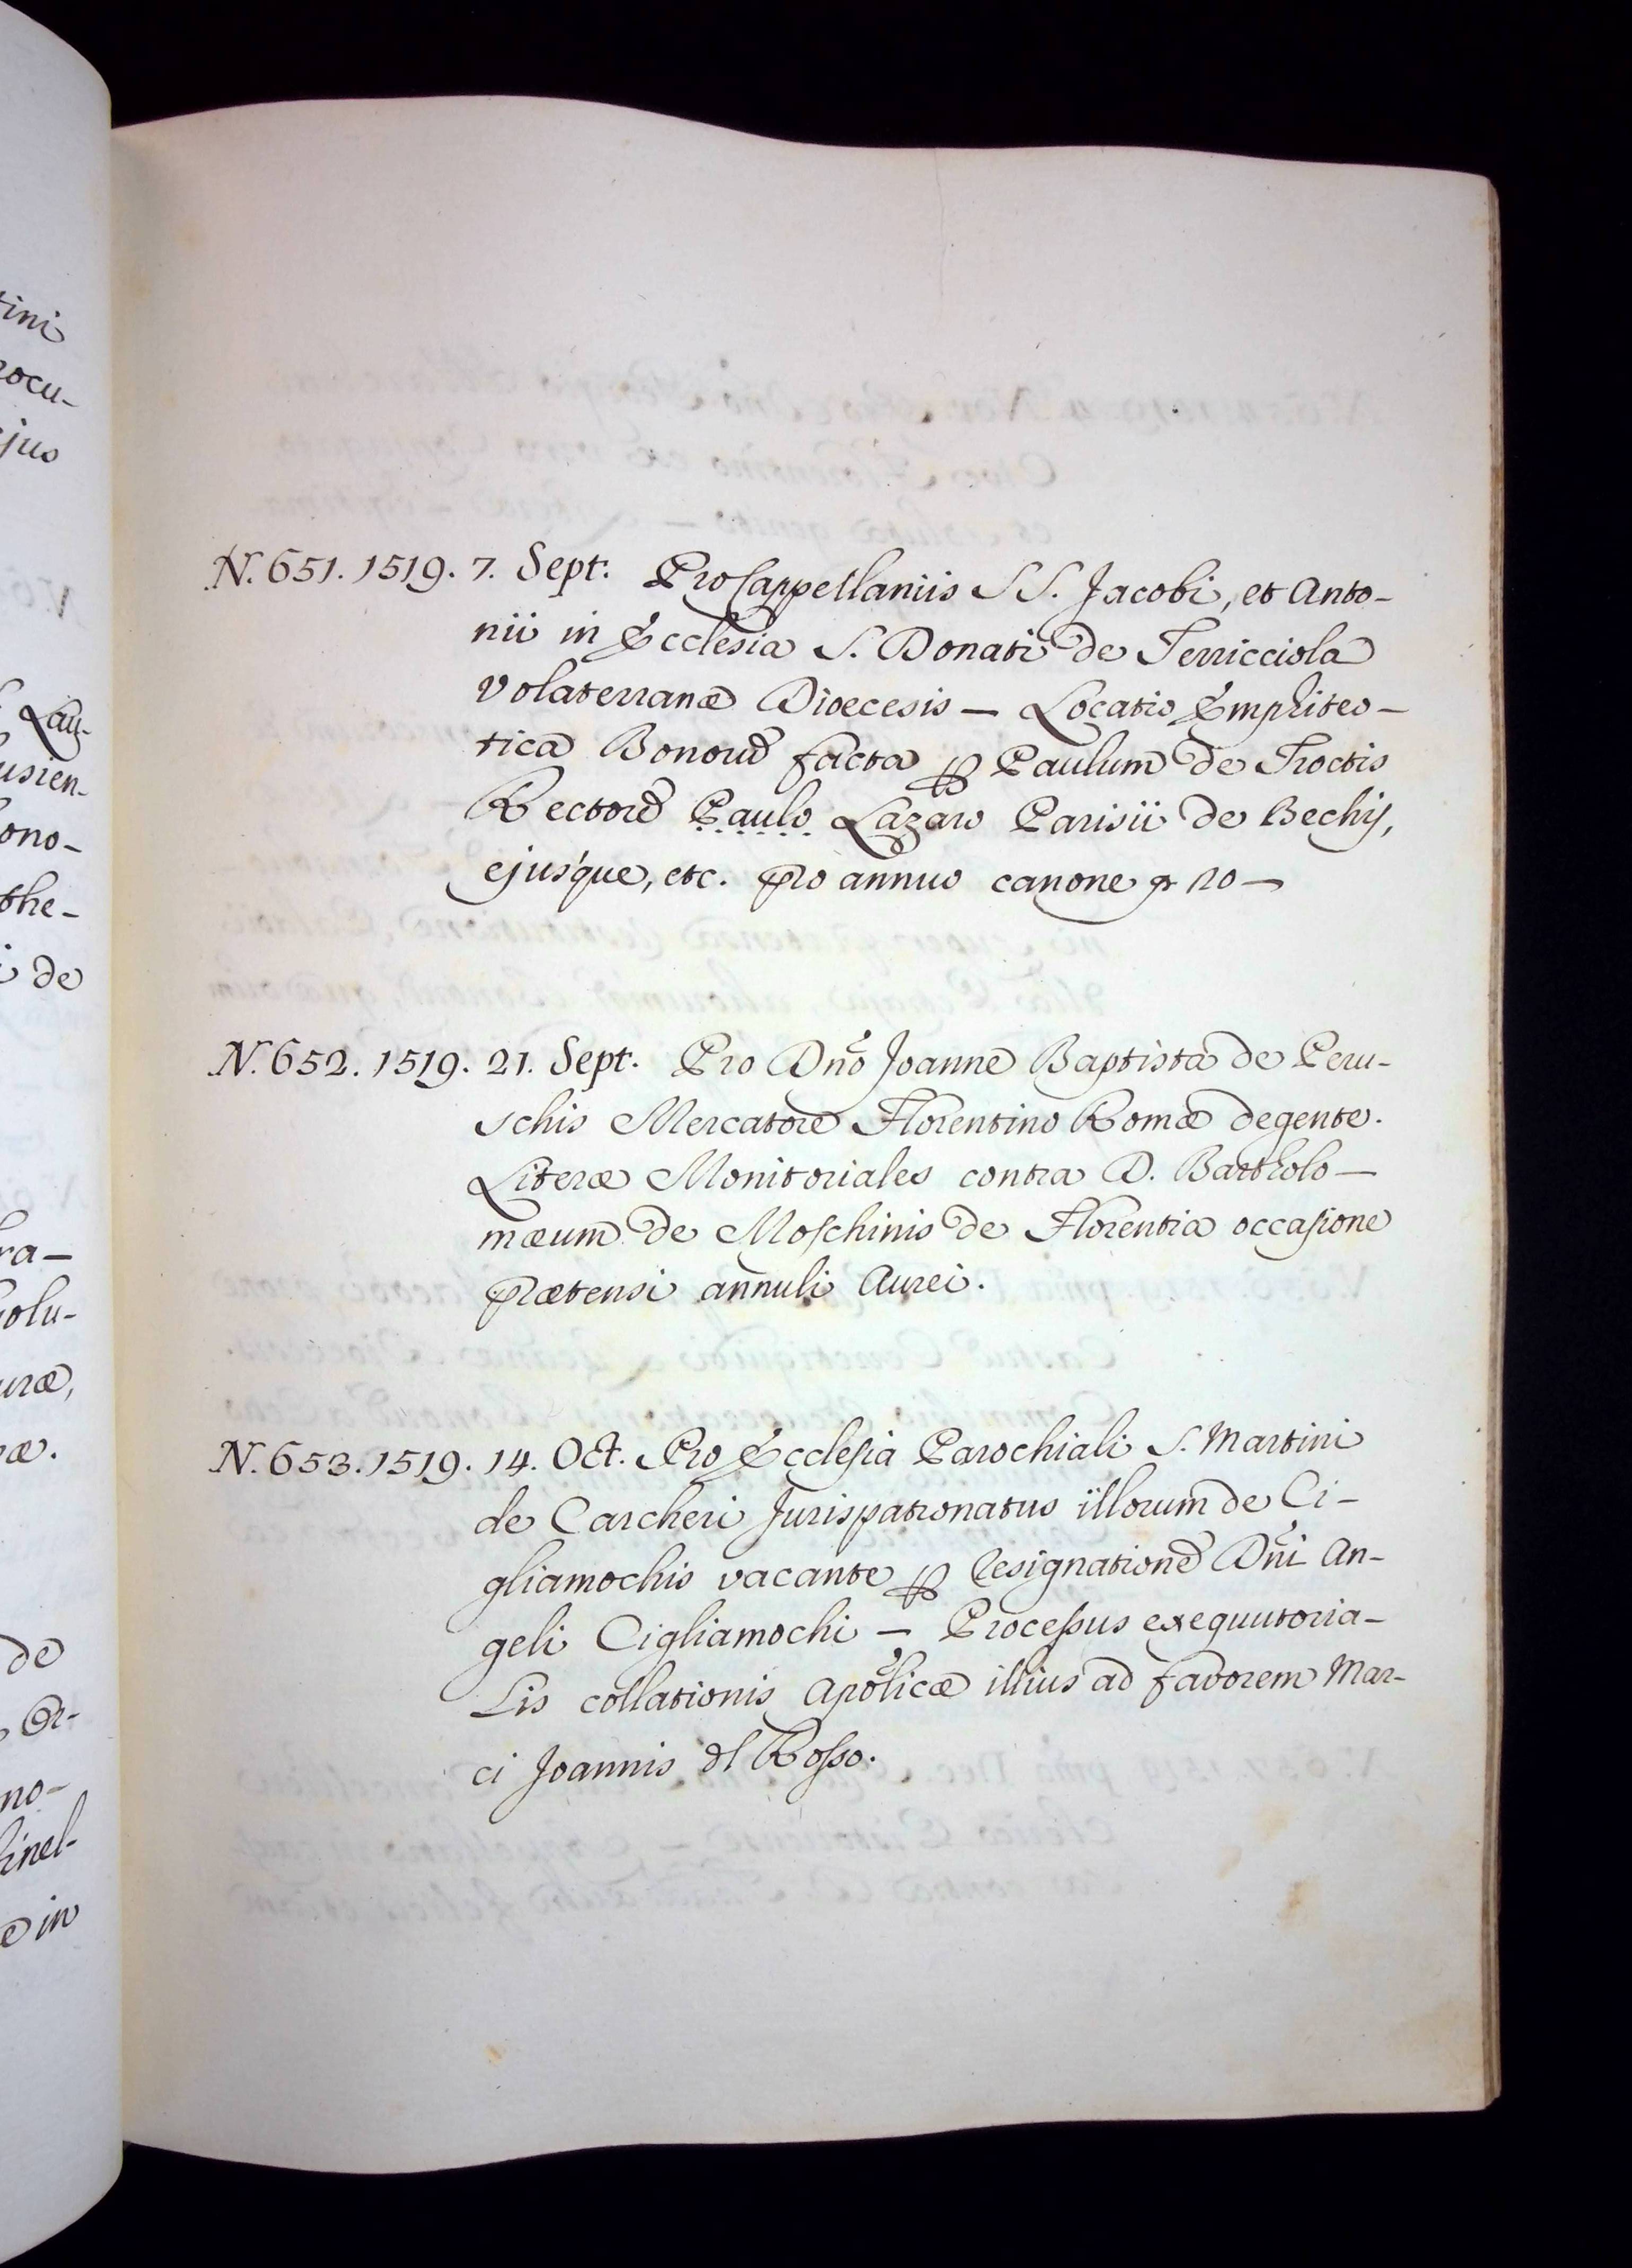 tini
rocu-
ejus
Lau-
usien-
ono-
the-
de
ra-
olu-
uræ,
æ.
de
Or-
no-
inel-
in
N. 651. 1519. 7. Sept. Pro Cappellaniis SS. Jacobi, et Anto-
nii in Ecclesia S. Donati de Terricciola
Volaterranæ Dioecesis — Locatio Emphiteo-
tica Bonorũ facta ꝑ Paulum de Troctis
Rectorẽ Paulo Lazaro Parisii de Bechij,
ejusque, etc. pro annuo canone 10 —
N. 652. 1519. 21. Sept. Pro Dño Joanne Baptista de Peru-
schis Mercatore Florentino Romæ degente.
Literæ Monitoriales contra D. Bartholo-
mæum de Moschinis de Florentia occasione
prætensi annuli Aurei.
N. 653. 1519. 14. Oct. Pro Ecclesia Parochiali S. Martini
de Carcheri Jurispatronatus illorum de Ci-
gliamochis vacante ꝑ Resignationẽ Dñi An-
geli Cigliamochi — Processus exequutoria-
lis collationis Apõlicæ illius ad favorem Mar-
ci Joannis dl Rosso.